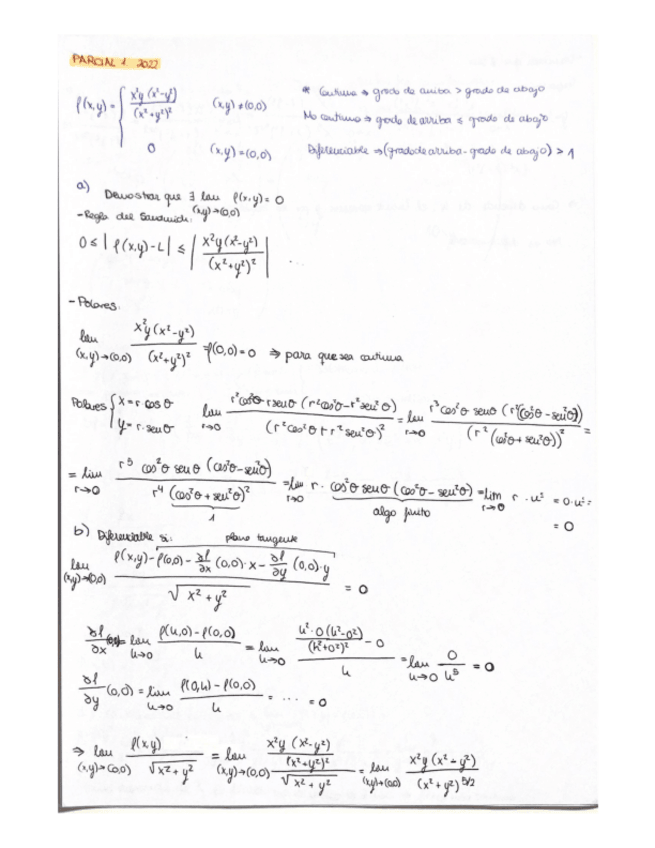 PARCIAL 1 2022
f(x,y) = { x²y (x²-y²) / (x²+y²)² (x,y) ≠ (0,0)
0 (x,y) = (0,0)
* Continua → grado de arriba > grado de abajo
No continua → grado de arriba ≤ grado de abajo
Diferenciable → (grado de arriba - grado de abajo) > 1
a) Demostrar que ∃ lim (x,y)→(0,0) f(x,y) = 0
- Regla del Sandwich:
0 ≤ | f(x,y) - L | ≤ | x²y (x²-y²) / (x²+y²)² | ...
- Polares:
lim (x,y)→(0,0) x²y (x²-y²) / (x²+y²)² = f(0,0) = 0 ⇒ para que sea continua
Polares { x = r cos θ
y = r · sen θ
lim r→0 r² cos²θ · r sen θ (r² cos²θ - r² sen²θ) / (r² cos²θ + r² sen²θ)² = lim r→0 r³ cos²θ sen θ (r² (cos²θ - sen²θ)) / (r² (cos²θ + sen²θ))² =
= lim r→0 r⁵ cos²θ sen θ (cos²θ - sen²θ) / r⁴ (cos²θ + sen²θ)² = lim r→0 r · cos²θ sen θ (cos²θ - sen²θ) = lim r→0 r ·
1
algo finito
= 0
b) Diferenciable si: plano tangente
lim (x,y)→(0,0) f(x,y) - f(0,0) - ∂f/∂x (0,0) · x - ∂f/∂y (0,0) · y / √x² + y² = 0
∂f/∂x (0,0) = lim h→0 f(h,0) - f(0,0) / h = lim h→0 h² · 0 (h² - 0²) / (h² + 0²)² - 0 / h = lim h→0 0 / h⁵ = 0
∂f/∂y (0,0) = lim h→0 f(0,h) - f(0,0) / h = ... = 0
⇒ lim (x,y)→(0,0) f(x,y) / √x² + y² = lim (x,y)→(0,0) x²y (x²-y²) / (x²+y²)² / √x² + y² = lim (x,y)→(0,0) x²y (x² - y²) / (x² + y²)^5/2